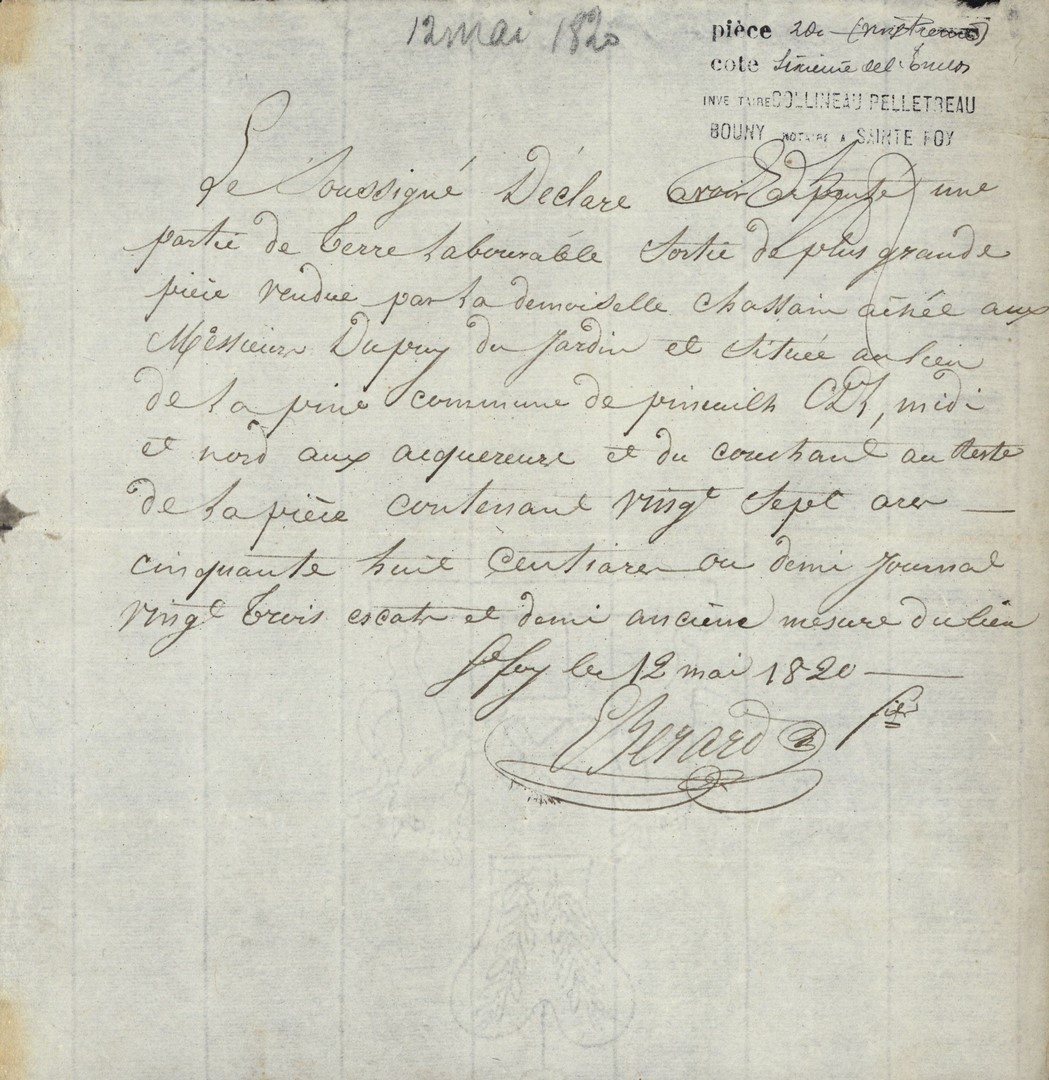 12 mai 1820
pièce 20e
cote Sixieme del Enclos
INVENTAIRE COLLINEAU PELLETREAU
BOUNY NOTAIRE A SAINTE FOY
Le Soussigné Déclare avoir Arpenté une
partie de Terre Labourable Sortie de plus grande
pièce vendue par La demoiselle Chassain ainée aux
Messieurs Dupuy du Jardin et Située au lieu
de La pine commune de pineuilh midi
et nord aux acquereurs et du couchant au Reste
de La pièce contenant vingt Sept ares
cinquante huit Centiares ou demi Journal
vingt Trois escats et demi anciène mesure du lieu
Ste foy le 12 mai 1820
Berard